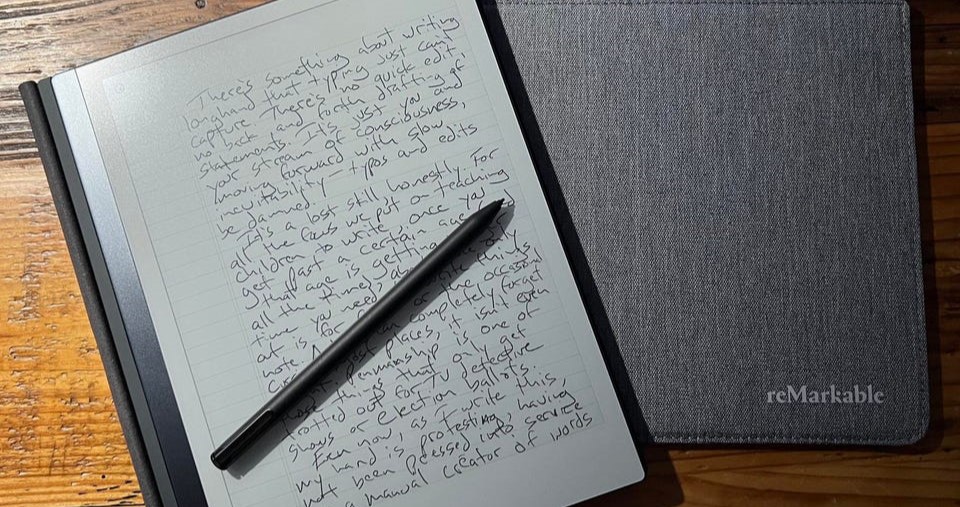 There's something about writing
longhand that typing just can't
capture. There's no quick edit,
no back and forth drafting of
statements. It's just you and
your stream of consciousness,
moving forward with slow
inevitability — typos and edits
be damned.
It's a lost still, honestly. For
all the focus we put on teaching
children to write, once you
get past a certain age
that age is getting
all the time,
time you need
at is for
note.
completely forgot
most places, it isn't even
penmanship is one of
those things that only get
trotted out for TV detective
shows or election ballots.
Even now, as I write this,
my hand is protesting, having
not been pressed into service
a manual creator of words
reMarkable